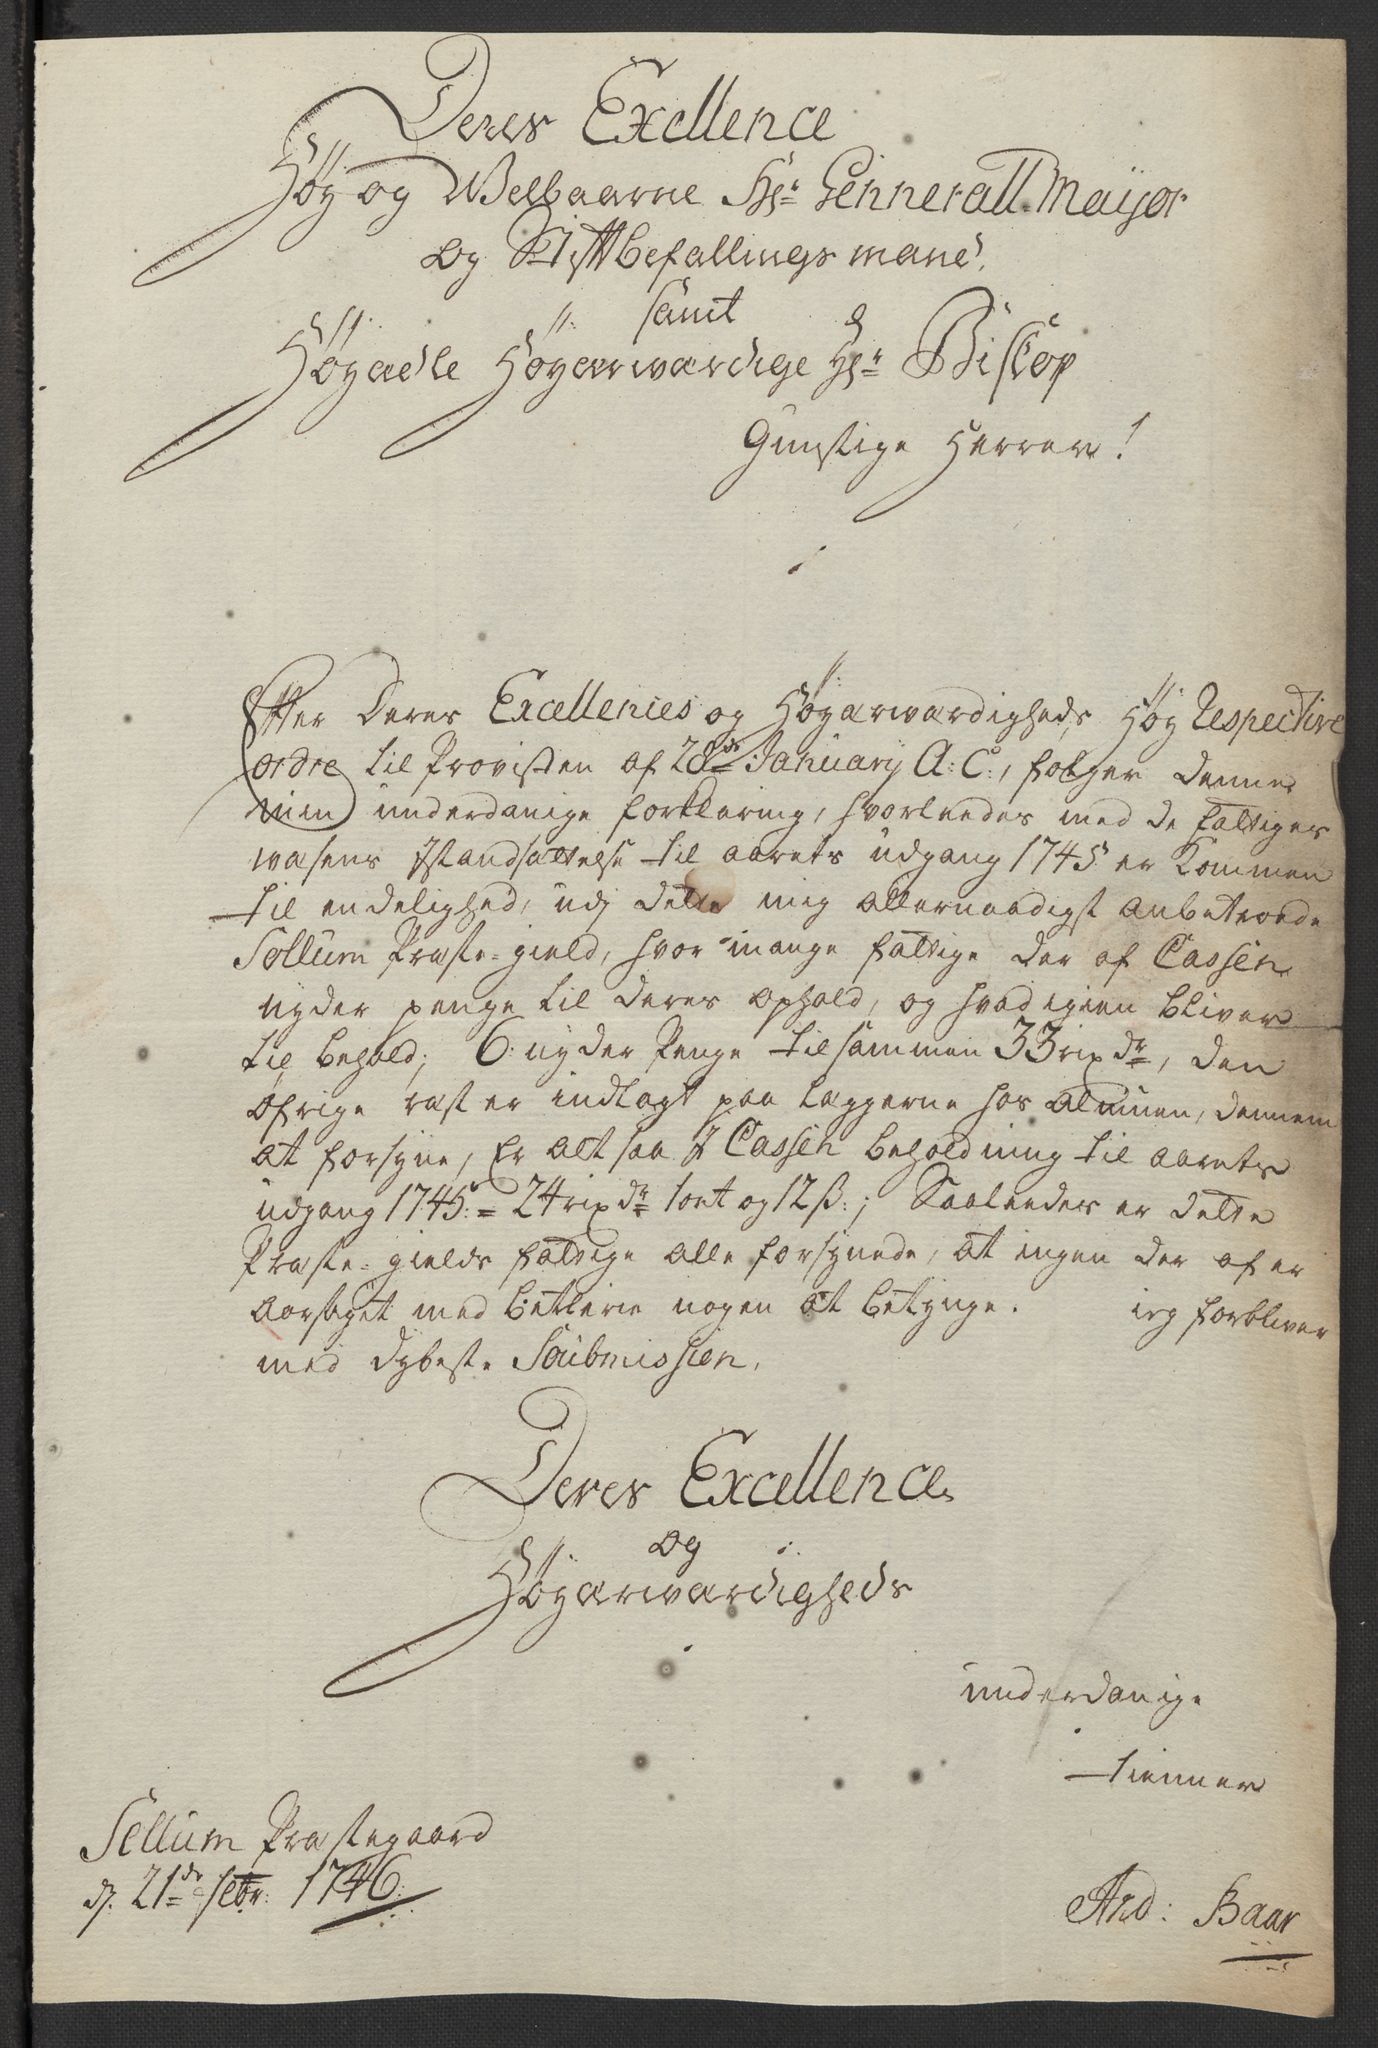 Deres Excellence
Høy og Welbaarne Hr. Gennerall Maijor
og Stiftbefallings mand,
samt
Høyædle Høyærwærdige Hr. Biskop
Gunstige Herrer!
Efter Deres Excellences og Høyærwærdigheds Høy Respective
ordre til Provsten af 28de January A: C:, følger denne
min underdanige forklaring, hvorleedes med de fattiges
wæsens Istandsættelse til aarets udgang 1745 er kommen
til endelighed, udj dette mig allernaadigst anbetroede
Søllum Præste-gield, hvor mange fattige der af Cassen
nyder penge til deres ophold, og hvad igien bliver
til behold; 6: nyder Penge tilsammen 33 rix dr, den
øfrige rest er indlagt paa læggerne hos almuen, dennem
at forsyne, Er alt saa J Cassen beholdning til aarets
udgang 1745: = 24 rix dr 1 ort og 12 ß:; Saaleedes er dette
Præste-gields fattige alle forsynede, at ingen der af er
aarsaget med betlerie nogen at betynge. ieg forbliver
med dybeste Soubmission,
Deres Excellence
og
Høyærwærdigheds
underdanige
tienner
Søllum Præstegaard
d. 21de febr: 1746:
And: Baar